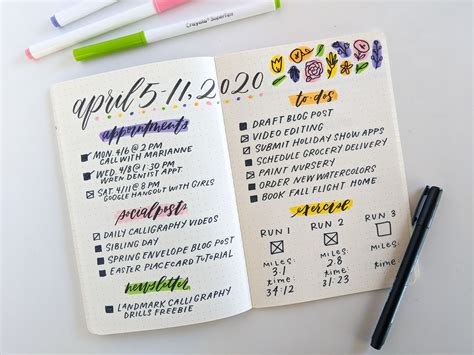 Crayola SuperTips
april 5-11, 2020
appointments
MON. 4/6 @ 2 PM
CALL WITH MARIANNE
WED. 4/8 @ 1:30 PM
WHEN DENTIST APPT.
SAT. 4/11 @ 8 PM
GOOGLE HANGOUT WITH GIRLS
social posts
DAILY CALLIGRAPHY VIDEOS
SIBLING DAY
SPRING ENVELOPE BLOG POST
EASTER PLACECARD TUTORIAL
newsletter
LANDMARK CALLIGRAPHY
DRILLS FREEBIE
to-dos
DRAFT BLOG POST
VIDEO EDITING
SUBMIT HOLIDAY SHOW APPS
SCHEDULE GROCERY DELIVERY
PAINT NURSERY
ORDER NEW WATERCOLORS
BOOK FALL FLIGHT HOME
exercise
RUN 1 RUN 2 RUN 3
MILES: MILES: MILES:
3.1 2.8
time: time: time:
34:12 31:23